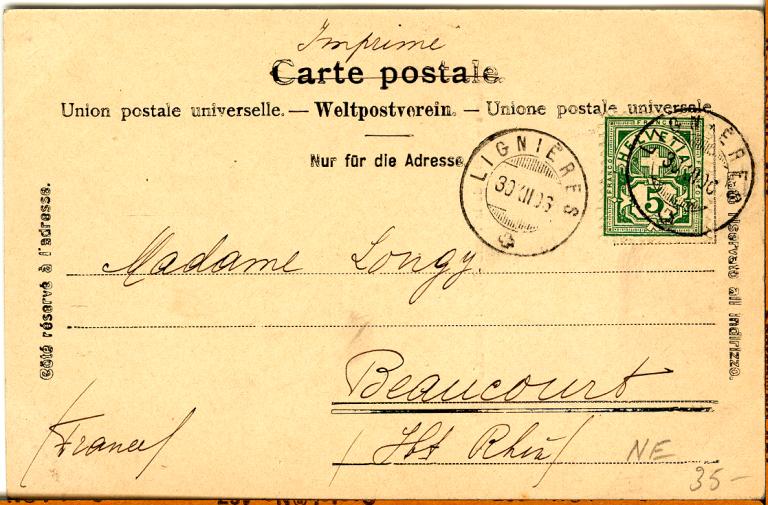 Imprimé
Carte postale
Union postale universelle. — Weltpostverein. — Unione postale universale
Nur für die Adresse
LIGNIÈRES
30 XII 06
FRANCO
HELVETIA
5
LIGNIÈRES
Côté réservé à l'adresse.
Lato riservato all'indirizzo.
Madame Longy.
Beaucourt
(France)
(Ht Rhin)
NE
35-